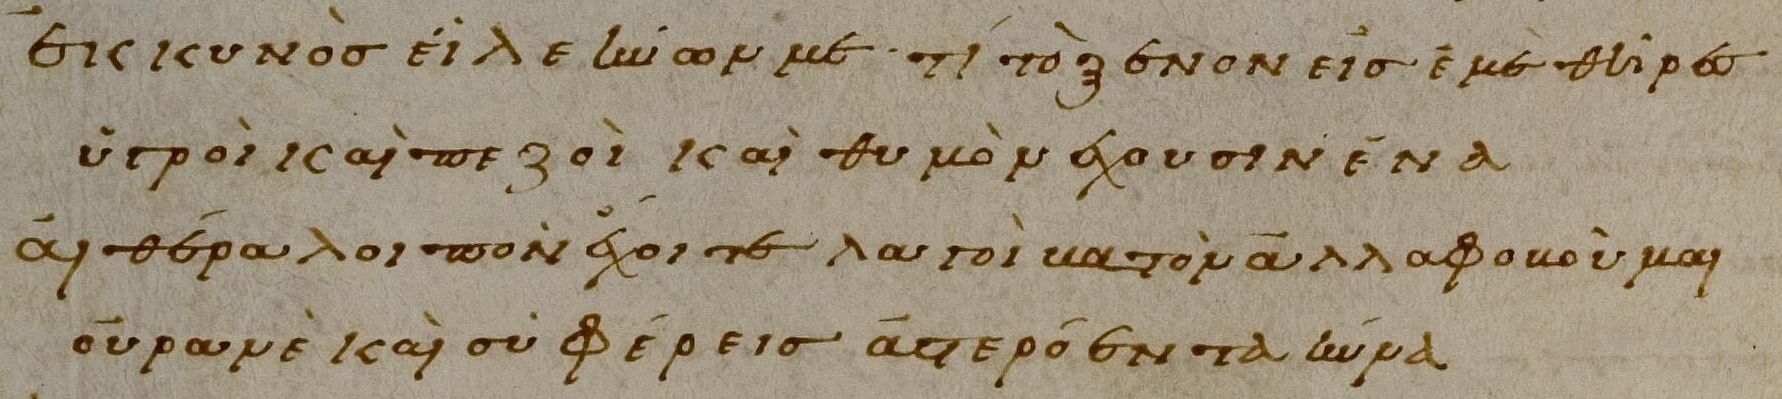 ἐκ κυνὸς εἷλε κύων με· τί τὸ ξένον εἰς ἐμὲ θῆρες
ὑγροὶ καὶ πεζοὶ καὶ θυμὸν ἔχουσιν ἕνα
αἰθέρα λοιπὸν ἔχοιτε λαγοὶ βατὸν ἀλλα φοβοῦμαι
οὐρανὲ καὶ σὺ φέρεις ἀστερόεντα κύνα